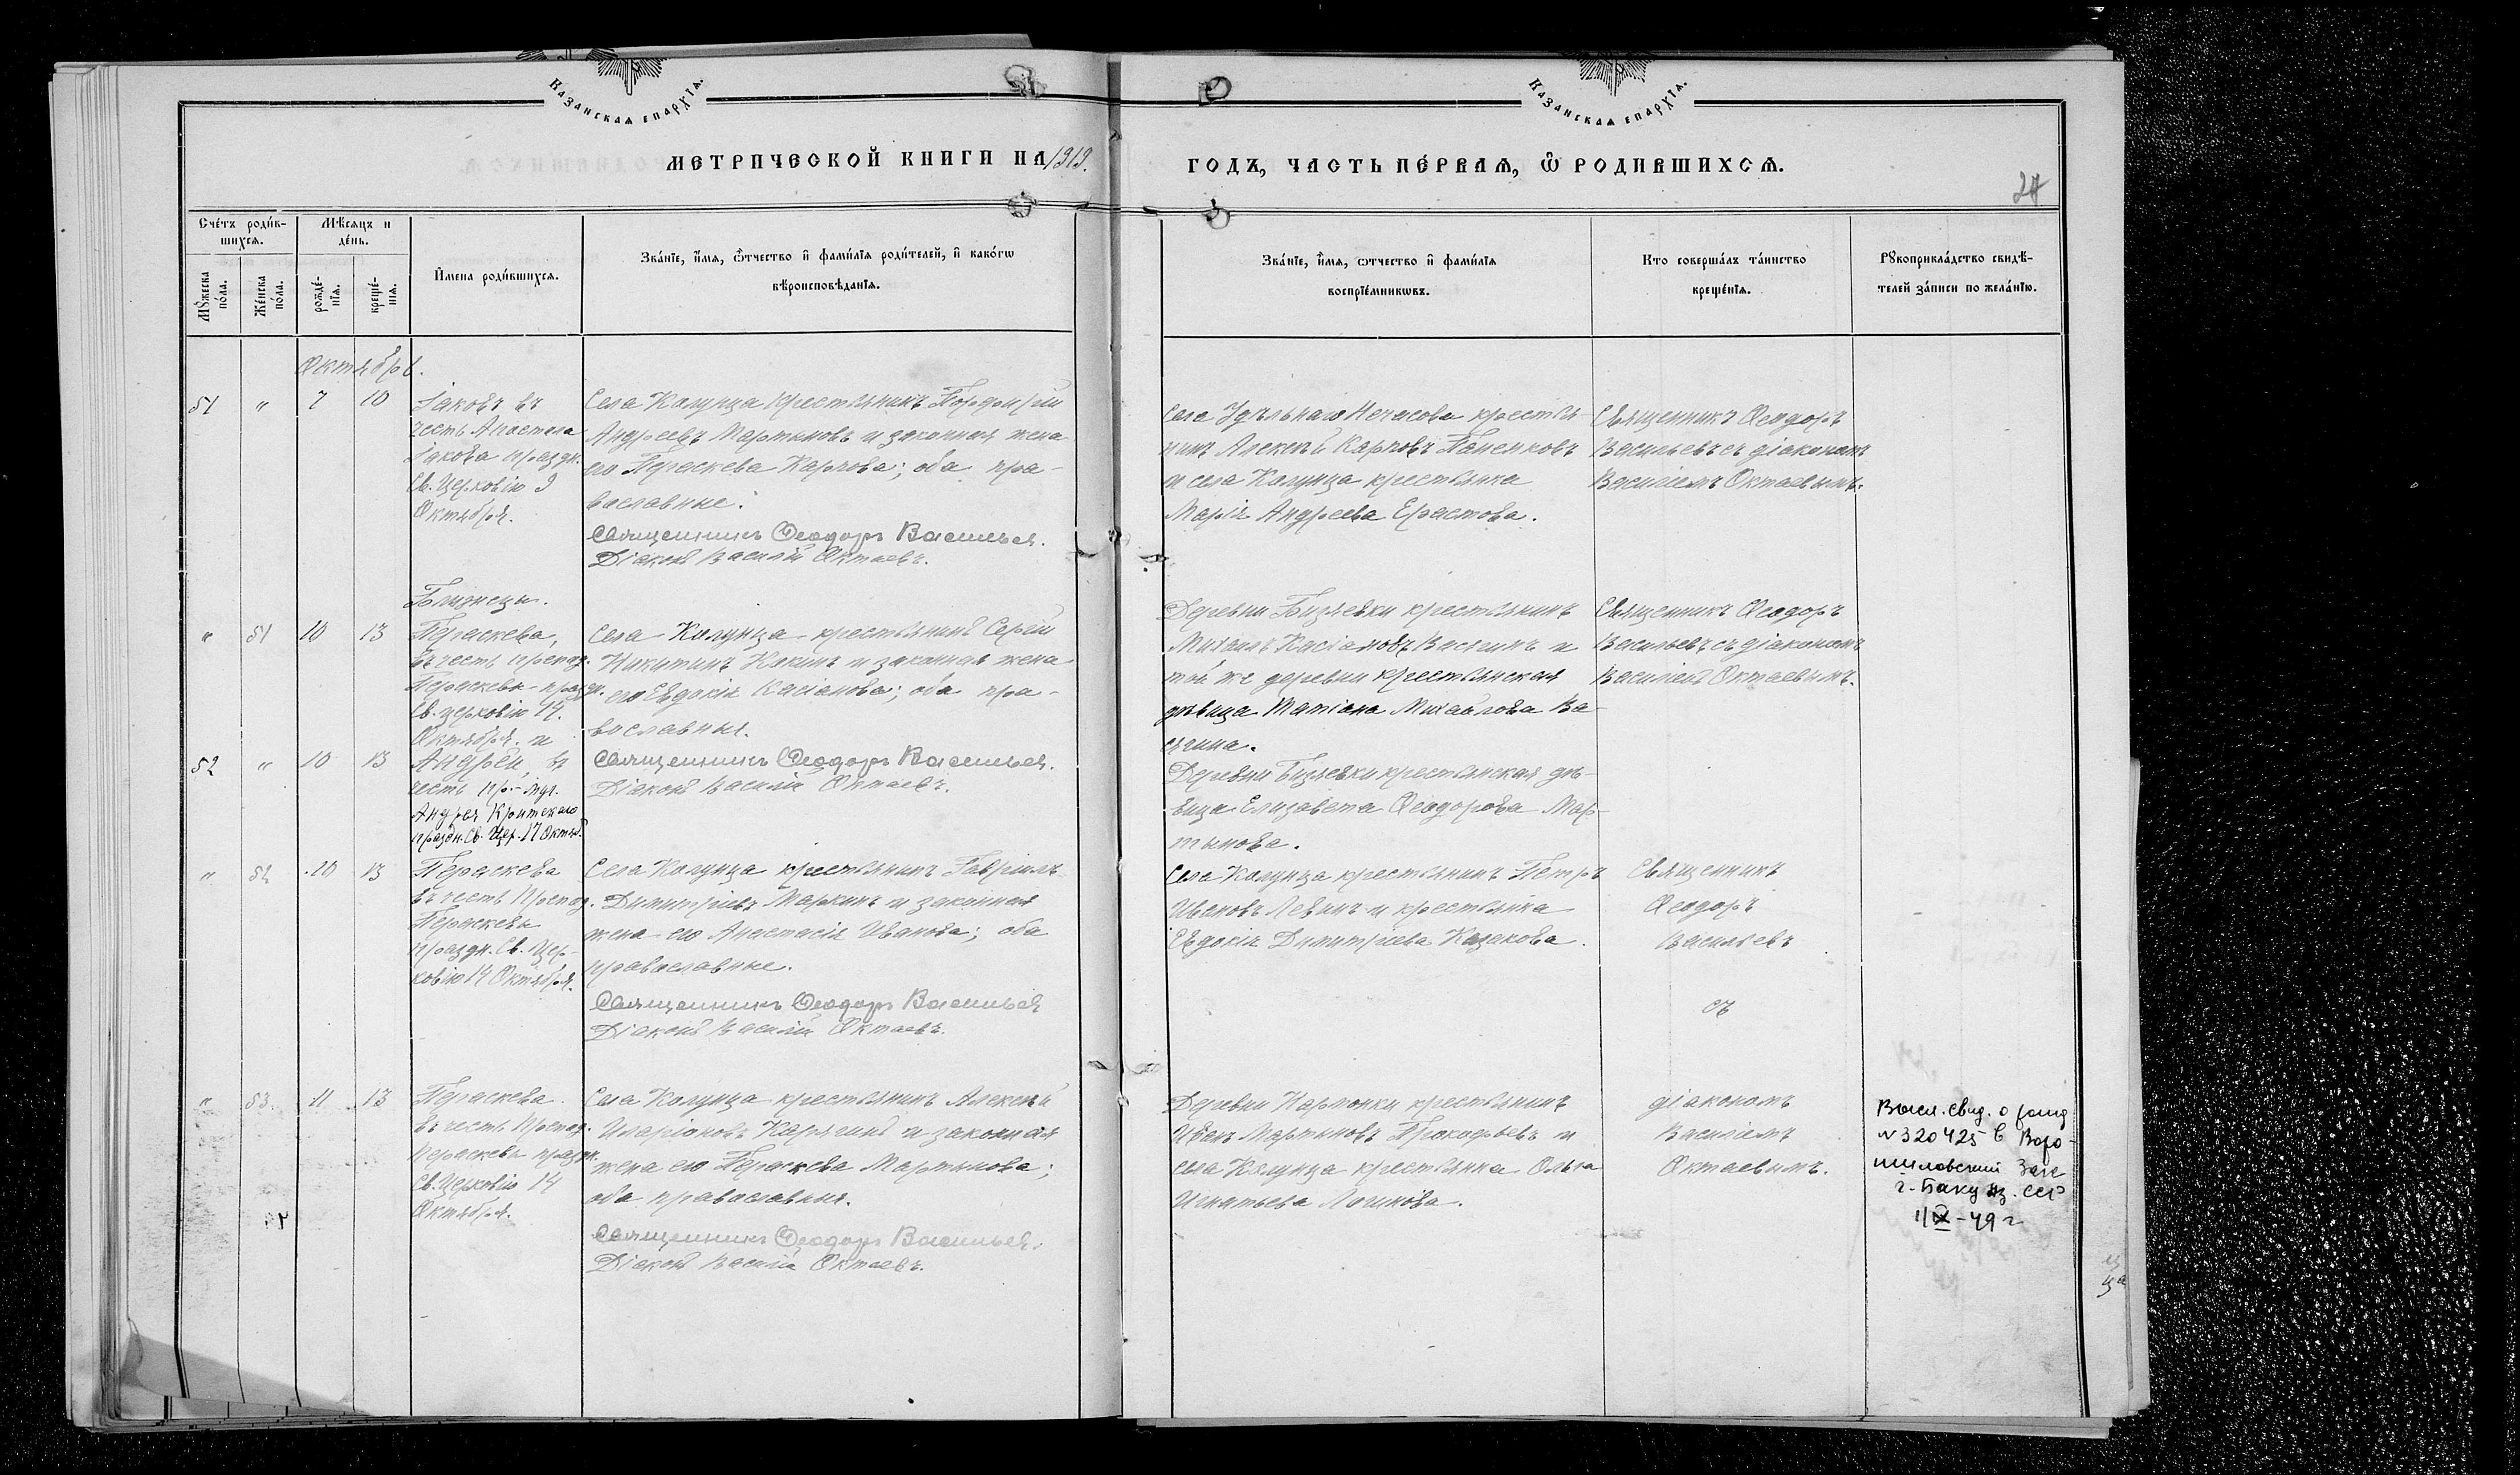 Казанская епархїѧ.
Казанская епархїѧ.
МЕТРИЧЕСКОЙ КНИГИ НА 1919.
ГОДЪ, ЧАСТЬ ПЕ́РВАѦ, Ѿ РОДИВШИХСѦ.
24
Сче́тъ роди́в-
шихсѧ.
Мѣ́сѧцъ и
де́нь.
Мꙋ́жеска
по́ла.
Же́нска
по́ла.
рожде́-
нїѧ.
креще́-
нїѧ.
И҆мена роди́вшихсѧ.
Зва́нїе, и҆́мѧ, ѻ҆́тчество и҆ фами́лїѧ роди́телей, и҆ како́гѡ
вѣроисповѣ́данїѧ.
Зва́нїе, и҆́мѧ, ѻ҆́тчество и҆ фами́лїѧ
воспрїе́мникѡвъ.
Кто соверша́лъ та́инство
креще́нїѧ.
Рꙋкоприкла́дство свидѣ́-
телей за́писи по жела́нїю.
Октябрь.
51 " 7 10
Іаковъ въ
честь Апостола
Іакова праздн.
Св. Церковію 9
Октября.
Села Колунца крестьянинъ Порфирій
Андреевъ Мартыновъ и законная жена
его Параскева Карпова; оба пра-
вославные.
Священникъ Ѳеодоръ Васильев.
Діаконъ Василій Октаевъ.
Села Удѣльнаго Нечасова крестья-
нинъ Алексѣй Карповъ Паненковъ
и села Колунца крестьянка
Марія Андреева Ерастова.
Священникъ Ѳеодоръ
Васильевъ съ діакономъ
Василіемъ Октаевымъ.
Близнецы.
" 51 10 13
Параскева,
въ честь препод.
Параскевы - праздн.
Св. церковію 14.
Октября. и
Села Колунца крестьянинъ Сергій
Никитинъ Кокинъ и законная жена
его Евдокія Касіанова; оба пра-
вославныя.
Священникъ Ѳеодоръ Васильев.
Діаконъ Василій Октаевъ.
Деревни Бизяевки крестьянинъ
Михаилъ Касіановъ Васягинъ и
той же деревни крестьянская
дѣвица Татіана Михайлова Ва-
сягина.
Священникъ Ѳеодоръ
Васильевъ съ діакономъ
Василіемъ Октаевымъ.
52 " 10 13
Андрей, въ
честь пр.-муч.
Андрея Критскаго
праздн. Св. Цер. 17 Октяб.
Деревни Бизяевки крестьянская дѣ-
вица Елизавета Ѳеодорова Мар-
тынова.
" 52 10 13
Параскева
въ честь Препод.
Параскевы
праздн. Св. Цер-
ковію 14 Октября.
Села Колунца крестьянинъ Гавріилъ
Димитріевъ Маркинъ и законная
жена его Анастасія Иванова; оба
православные.
Священникъ Ѳеодоръ Васильев
Діаконъ Василій Октаевъ.
Села Колунца крестьянинъ Петръ
Ивановъ Левинъ и крестьянка
Евдокія Димитріева Казакова.
Священникъ
Ѳеодоръ
Васильевъ
съ
" 53. 11 13
Параскева
въ честь Препод.
Параскевы праздн.
Св. Церковію 14
Октября.
Села Колунца крестьянинъ Алексѣй
Иларіоновъ Карягинъ и законная
жена его Параскева Мартынова;
оба православныя.
Священникъ Ѳеодоръ Васильев.
Діаконъ Василій Октаевъ.
Деревни Пармонки крестьянинъ
Иванъ Мартыновъ Прокофьевъ и
села Колунца крестьянка Ольга
Игнатьева Логинова.
діакономъ
Василіемъ
Октаевымъ.
Высл. свид. о рожд
N 320425 в Воро-
шиловский Загс
г. Баку Аз. ССР
1/IX-49 г